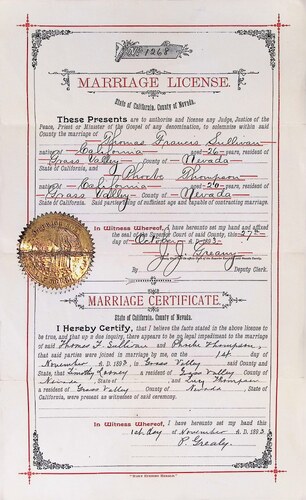 No. 1268
MARRIAGE LICENSE.
State of California, County of Nevada.
These Presents are to authorize and license any Judge, Justice of the
Peace, Priest or Minister of the Gospel of any denomination, to solemnize within said
County the marriage of Thomas Francis Sullivan
native of California aged 26 years, resident of
Grass Valley County of Nevada
State of California, and Phoebe Thompson
native of California aged 26 years, resident of
Grass Valley County of Nevada
State of California. Said parties being of sufficient age and capable of contracting marriage.
In Witness Whereof, I have hereunto set my hand and affixed
the seal of the Superior Court of said County, this 27th
day of October A. D. 1893
J. J. Greany
By Deputy Clerk.
MARRIAGE CERTIFICATE.
State of California, County of Nevada.
I Hereby Certify, that I believe the facts stated in the above license to
be true, and that up n due inquiry, there appears to be no legal impediment to the marriage
of said Thomas F Sullivan and Phoebe Thompson,
that said parties were joined in marriage by me, on the 1st day of
November A. D. 1893, in Grass Valley said County
and State; that Timothy a resident of Grass Valley County of
Nevada, State of and Lucy Thompson
a resident of Grass Valley County of Nevada, State of
California, were present as witnesses of said ceremony.
In Witness Whereof, I have hereunto set my hand this
1st day November A. D. 1893
P. Grealy.